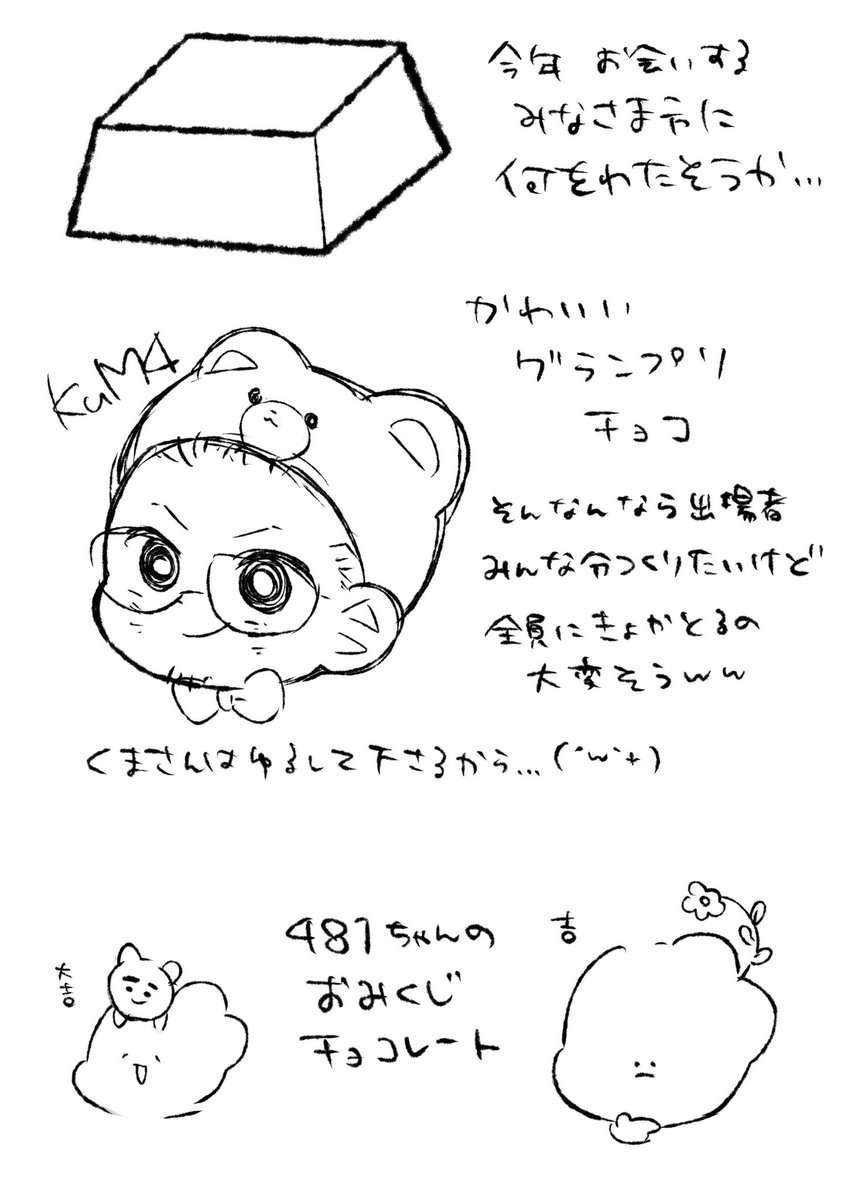 今年 お会いする
みなさま方に
何をわたそうか…
KuMA
かわいい
グランプリ
チョコ
そんなんなら出場者
みんな分つくりたいけど
全員にきょかとるの
大変そうww
くまさんはゆるして下さるから…(´ω`+)
481ちゃんの
おみくじ
チョコレート
大吉
吉